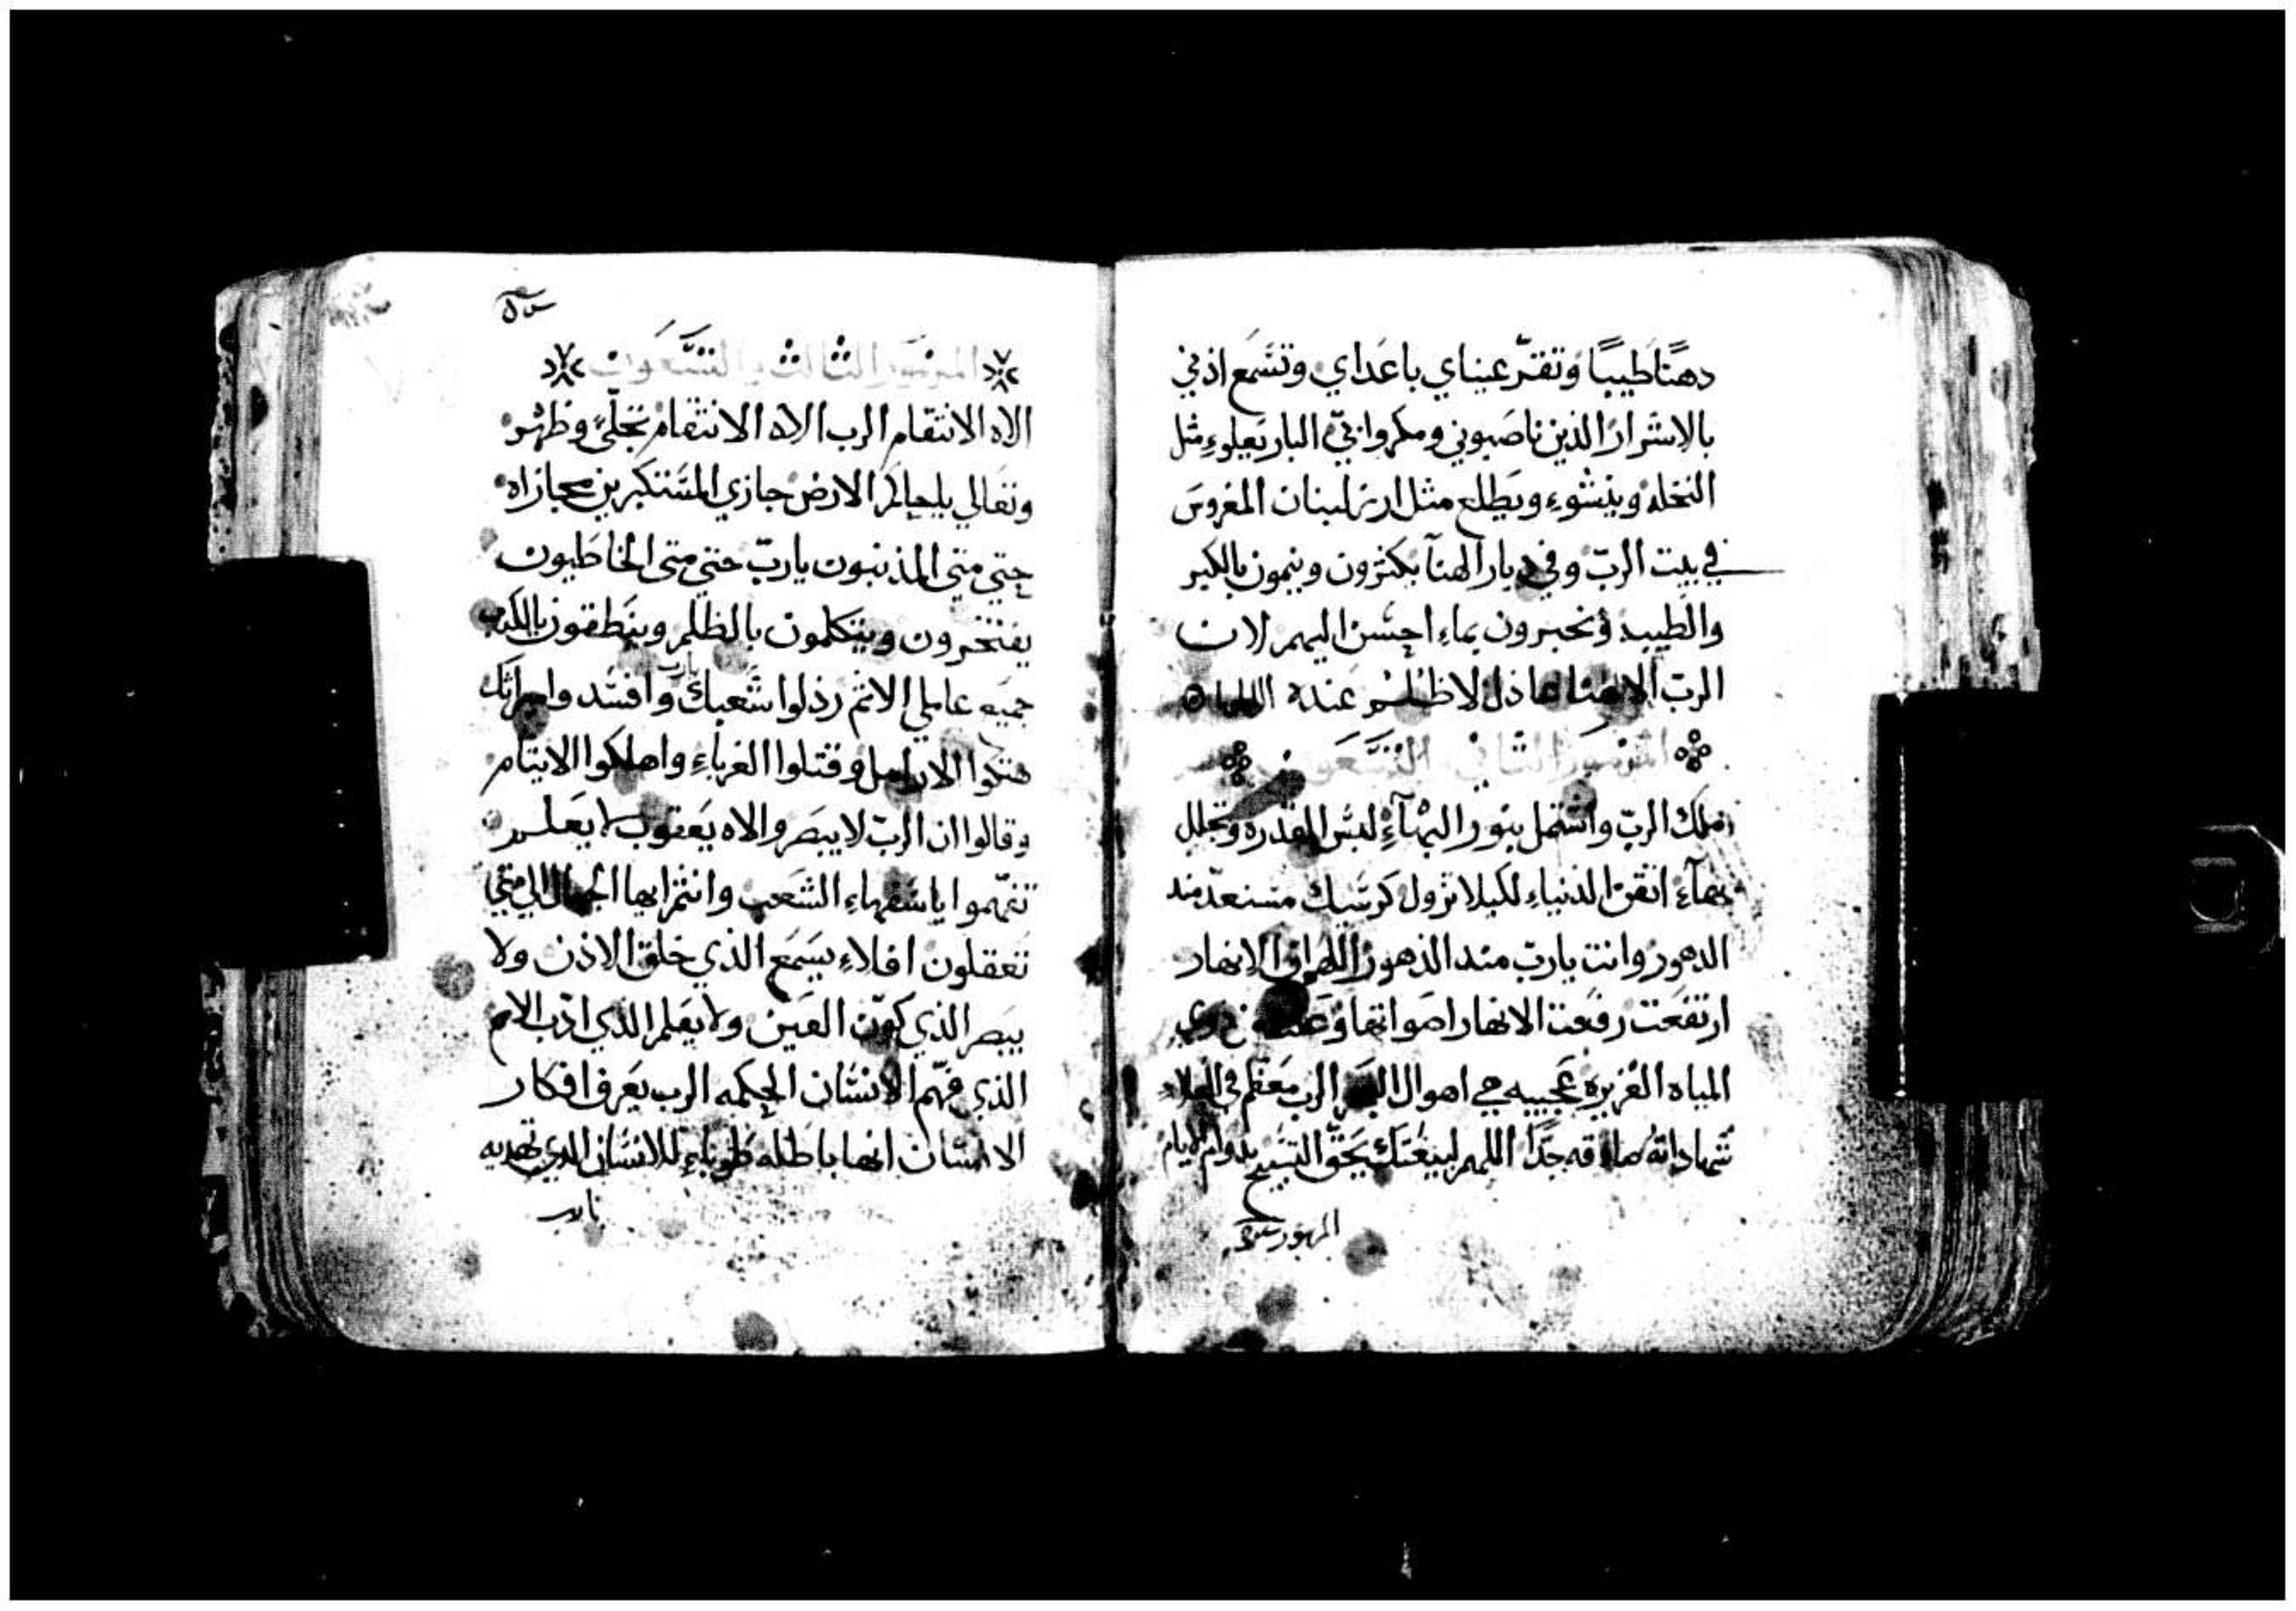 دهنًا طيبًا وتقرّ عيناي باعداي وتسمع اذني
بالاشرار الذين ناصبوني ومكروا بيّ البار يعلوء مثل
النخله وينشوء ويطلع مثل ارز لبنان المغروس
في بيت الربّ وفي ديار الهنآ يكثرون وينمون بالكبر
والطيبه ويخبرون بماء احسن اليهم لان
الربّ الاهنا عادل لا ظلم عنده
المزمور الثاني والتسعون
ملك الربّ واشتمل بنور البهآء لبس القدره وتجلل
بهآء اتقن الدنياء لكيلا تزول كرسيك مستعدّ منذ
الدهور وانت يا ربّ منذ الدهور الانهار
ارتفعت رفعت الانهار اصواتها
المياه الغزيره عجيبه هي اهوال البحر الرب معظم في العلاء
شهاداته صادقه جدًا اللهم لبيعتك يحقّ التسبيح بدوام الايام
المزمور
المزمور الثالث والتسعون
الاه الانتقام الرب الاه الانتقام تجلّيَ وظهر
وتعالي يا حاكم الارض جازي المستكبرين مجازاه
حتي متي المذنبون يا ربّ حتي متي الخاطيون
يفتخرون ويتكلمون بالظلم وينطقون بالكذب
جميع عاملي الاثم رذلوا شعبك يا رب وافسدوا ميراثك
هتكوا الارامل وقتلوا الغرباء واهلكوا الايتام
وقالوا ان الربّ لا يبصر والاه يعقوب لا يعلم
تفهّموا يا سفهاء الشعب وانتم ايها الجهال الي متي
تعقلون افلاء يسمع الذي خلق الاذن ولا
يبصر الذي كوّن العين ولا يعلم الذي ادّب الامم
الذي فهّم الانسان الحكمه الرب يعرف افكار
الانسان انها باطله طوباء للانسان الذي تهديه
يا رب